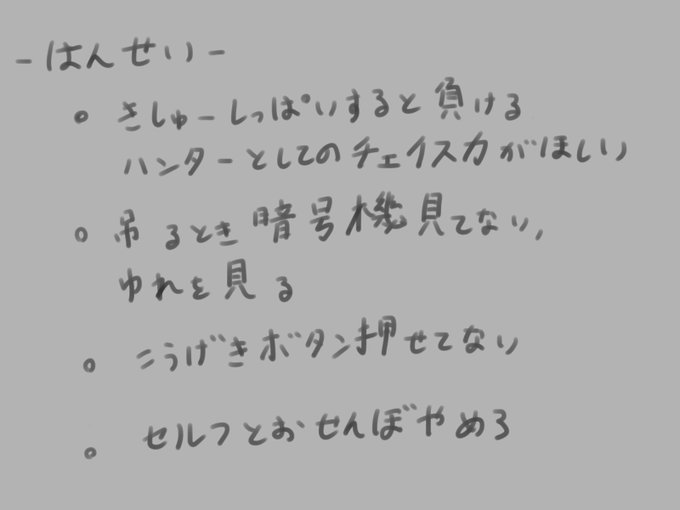 -はんせい-
。きしゅーしっぱいすると負ける
ハンターとしてのチェイス力がほしい
。吊るとき暗号機見てない,
ゆれを見る
。こうげきボタン押せてない
。セルフとおせんぼやめろ